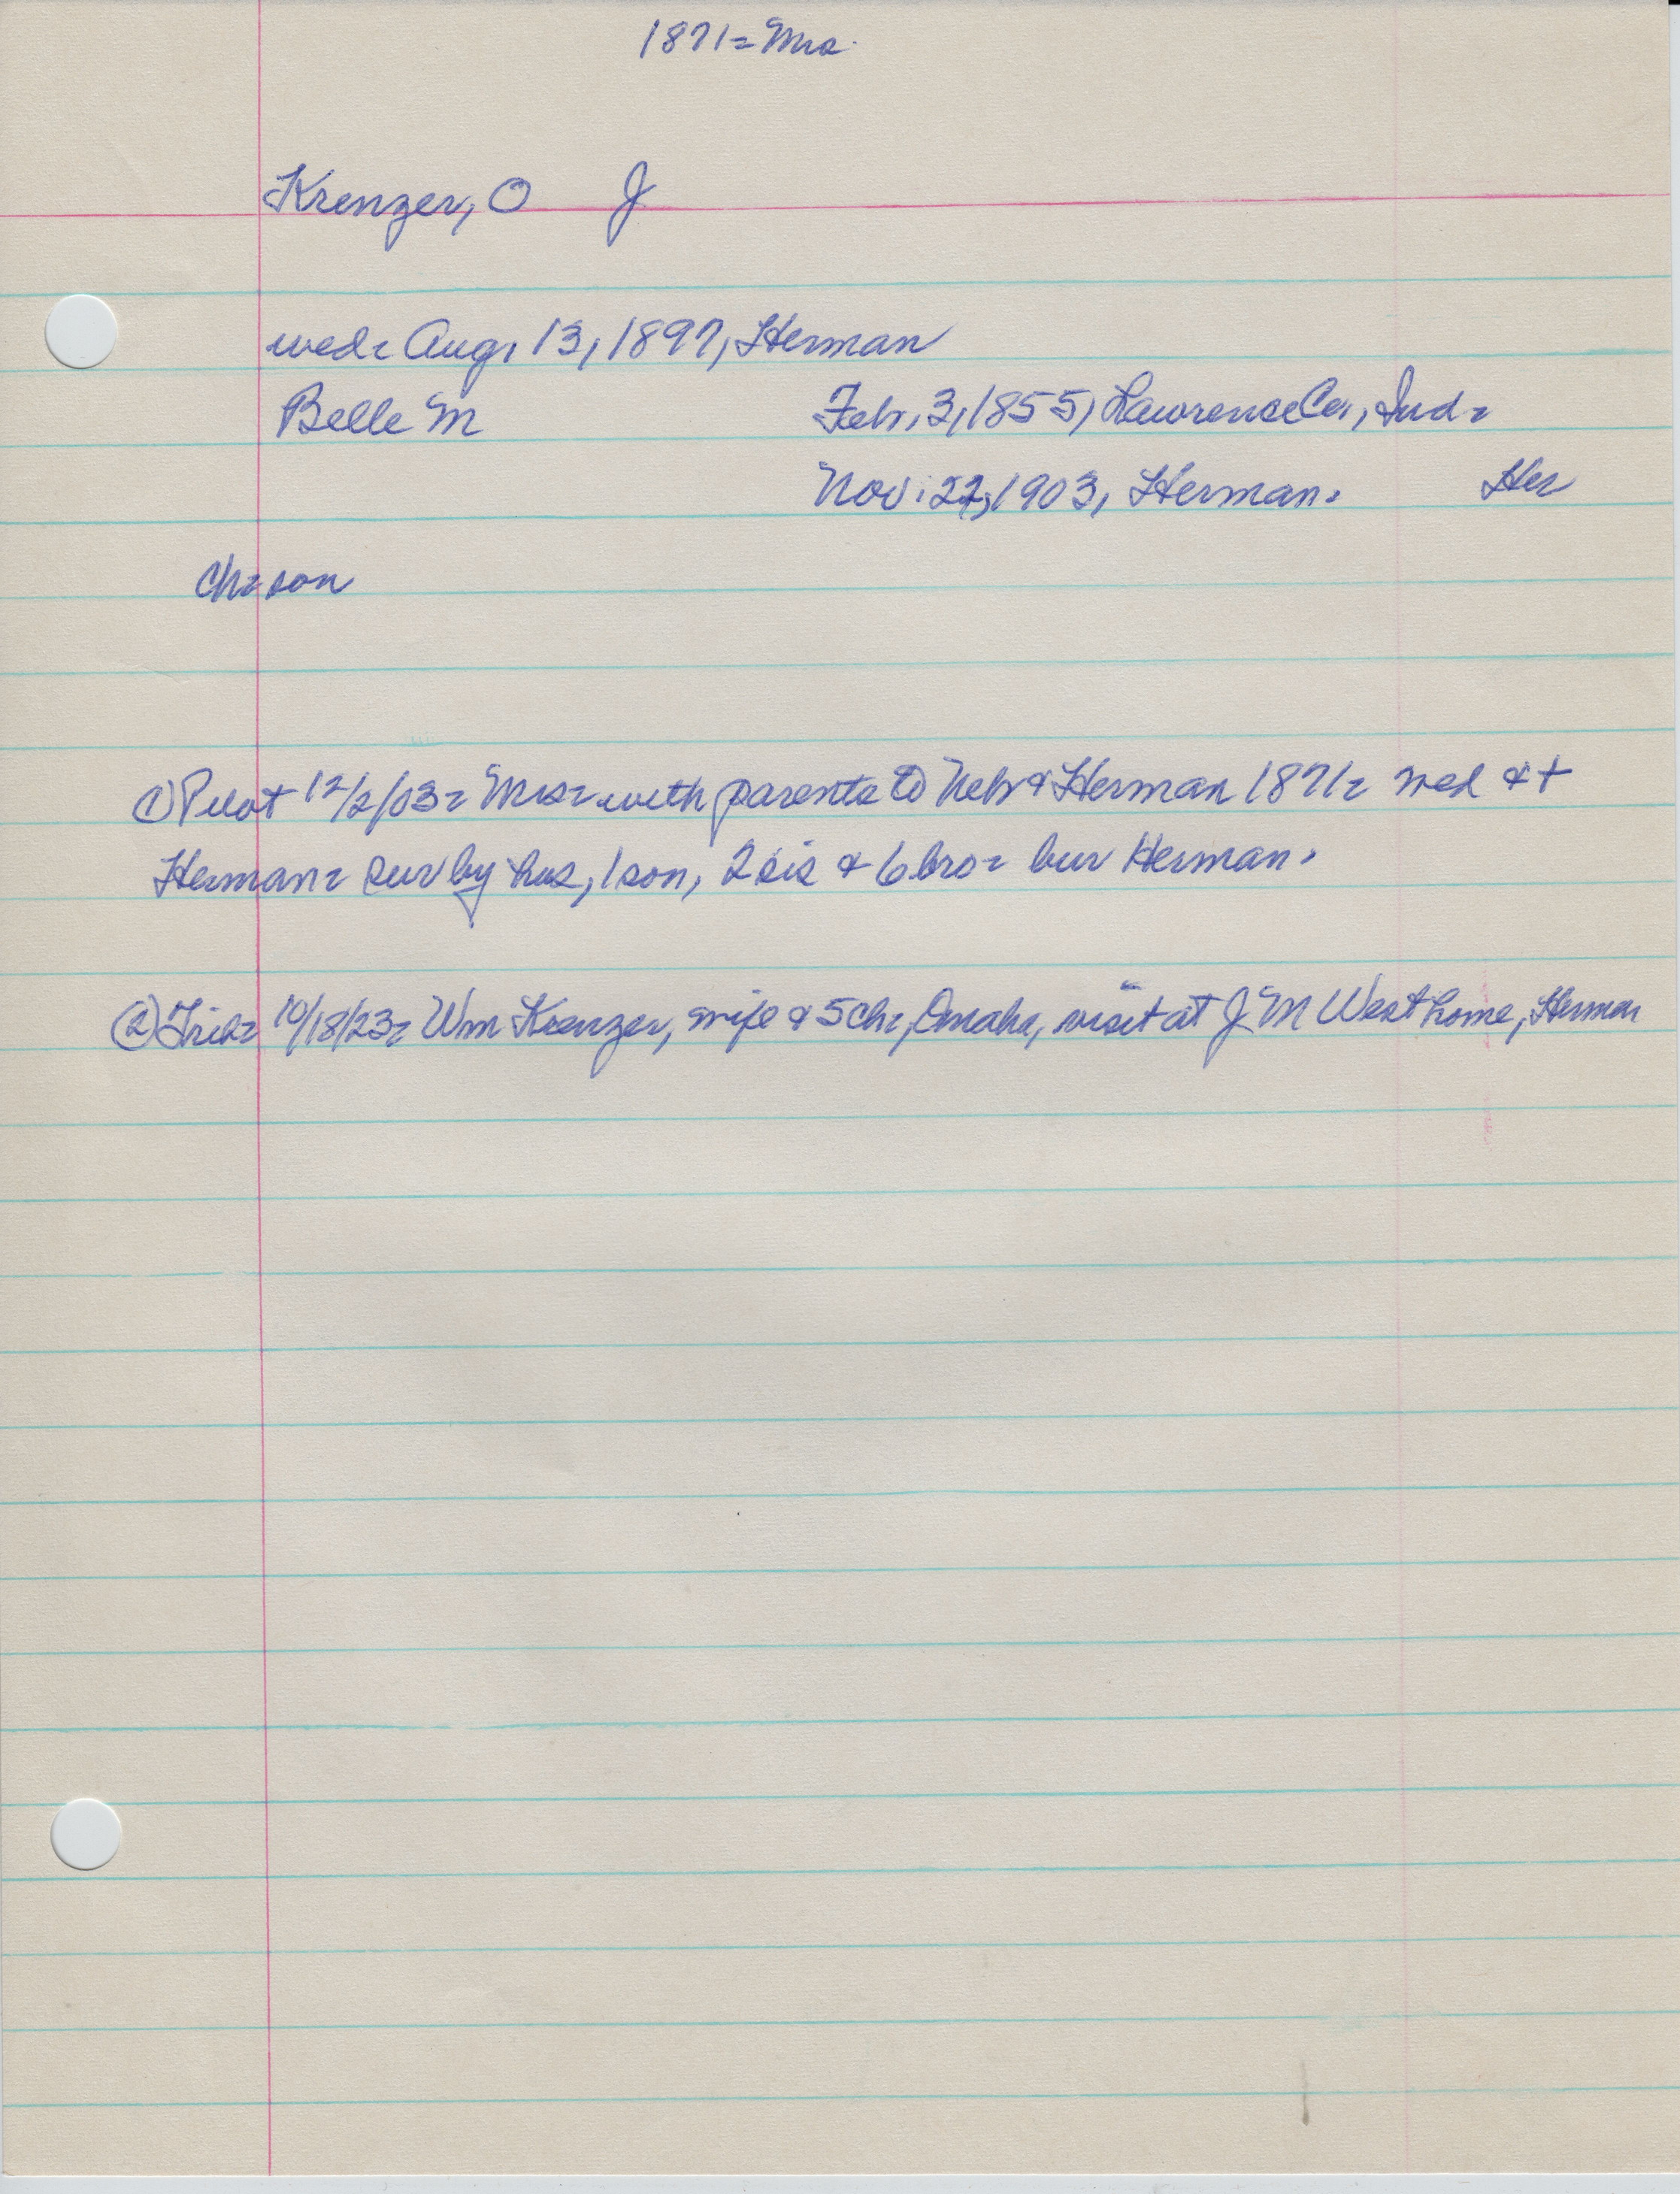 1871= Mrs.
Krenzer, O J
wed= Aug. 13, 1897, Herman
Belle M Feb. 3, 1855, Lawrence Co., Ind=
Nov. 22, 1903, Herman. Her
Ch= son
① Pilot 12/2/03= Mrs= with parents to Neb & Herman 1871= wed & +
Herman= sur by hus, 1 son, 2 sis & 6 bro= bur Herman.
② Trib= 10/18/23= Wm Krenzer, wife & 5 ch=, Omaha, visit at J M West home, Herman